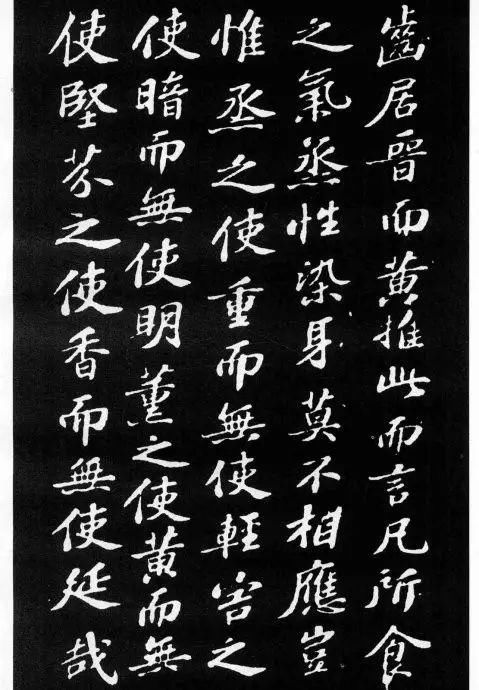 齒居晉而黃推此而言凡所食
之氣蒸性染身莫不相應豈
惟蒸之使重而無使輕害之
使暗而無使明薰之使黃而無
使堅芬之使香而無使延哉